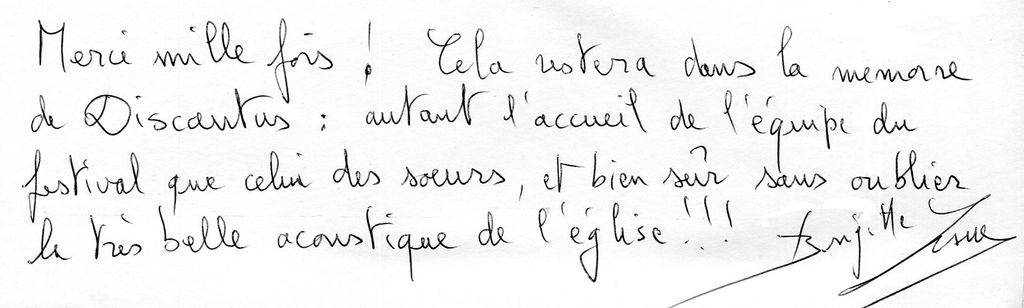 Merci mille fois ! Cela restera dans la memoire
de Discantus : autant l'accueil de l'équipe du
festival que celui des soeurs, et bien sûr sans oublier
la très belle acoustique de l'église !!! Brigitte Lesne